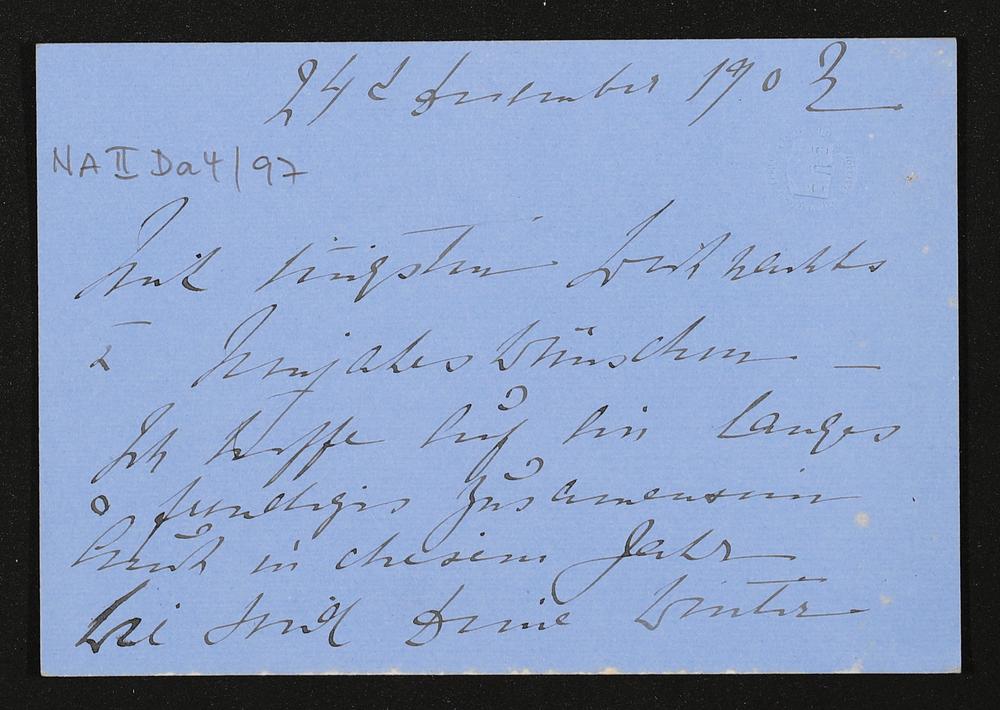 24 d December 1902
NA II Da 4/97
Mit innigsten Weihnachts
u Neujahrs Wünschen —
Ich hoffe auf ein langes
freudiges Zusammensein
auch in diesem Jahr
Wie sind Deine Winter